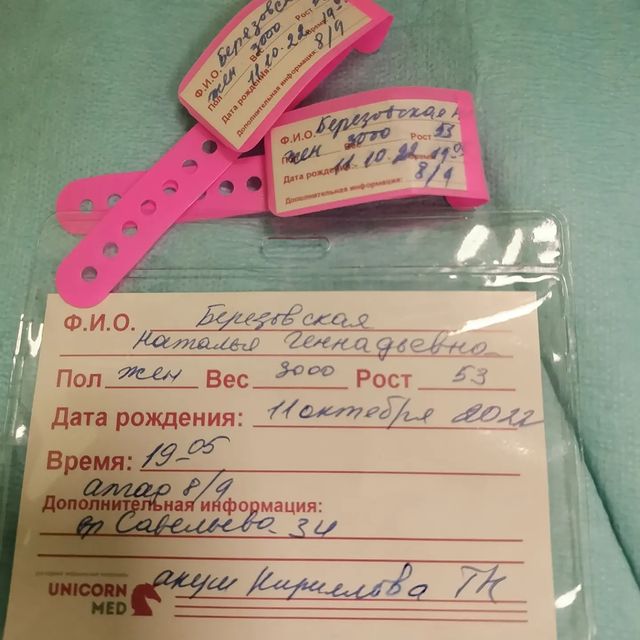 Ф.И.О. Березовск
жен 3000 Рост
Пол Вес
Дата рождения: 11.10.22 19
Дополнительная информация: 8/9
Ф.И.О. Березовская Н
жен 3000 Рост 53
Дата рождения: 11.10.22 Время: 19-05
Дополнительная информация: 8/9
Ф.И.О. Березовская
Наталья Геннадьевна
Пол жен Вес 3000 Рост 53
Дата рождения: 11 октября 2022
Время: 19-05
апгар 8/9
Дополнительная информация:
вр Савельева ЗИ
акуш Кириллова ТН
UNICORN
MED